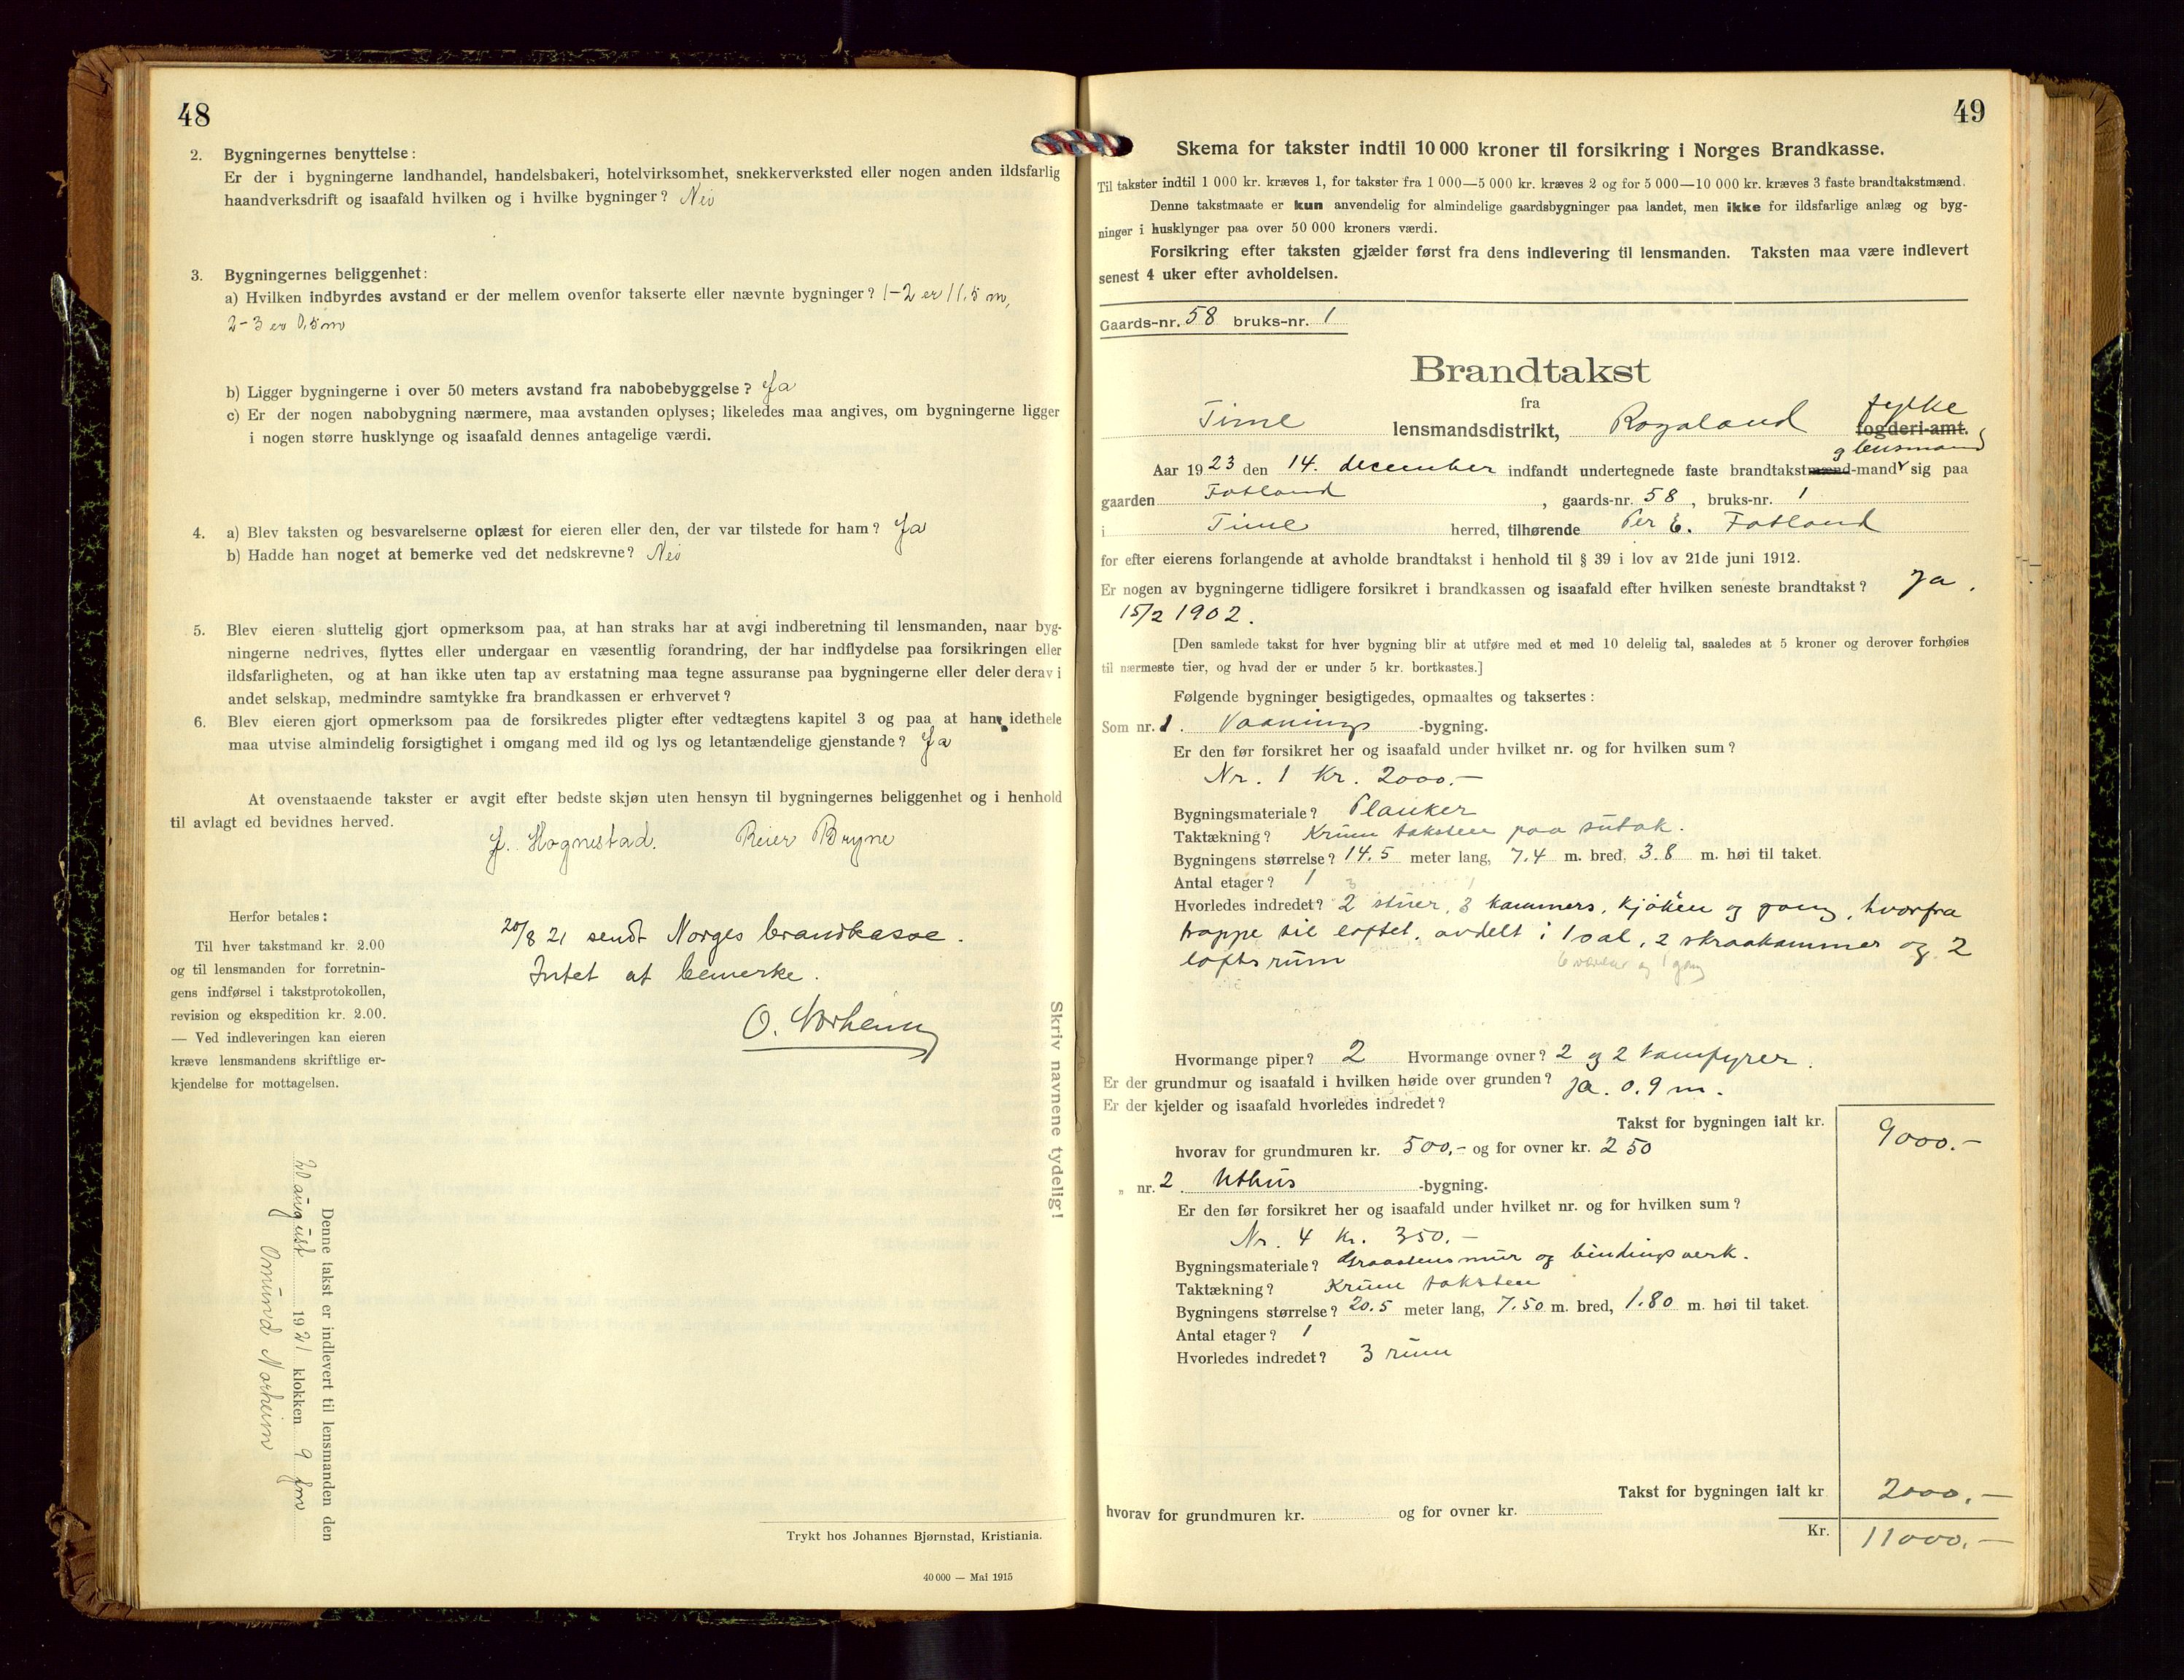 48
2. Bygningernes benyttelse:
Er der i bygningerne landhandel, handelsbakeri, hotelvirksomhet, snekkerverksted eller nogen anden ildsfarlig
haandverksdrift og isaafald hvilken og i hvilke bygninger? Nei
3. Bygningernes beliggenhet:
a) Hvilken indbyrdes avstand er der mellem ovenfor takserte eller nævnte bygninger? 1-2 er 11.5 m,
2-3 er 0.5m
b) Ligger bygningerne i over 50 meters avstand fra nabobebyggelse? Ja
c) Er der nogen nabobygning nærmere, maa avstanden oplyses; likeledes maa angives, om bygningerne ligger
i nogen større husklynge og isaafald dennes antagelige værdi.
4. a) Blev taksten og besvarelserne oplæst for eieren eller den, der var tilstede for ham? Ja
b) Hadde han noget at bemerke ved det nedskrevne? Nei
5. Blev eieren sluttelig gjort opmerksom paa, at han straks har at avgi indberetning til lensmanden, naar byg-
ningerne nedrives, flyttes eller undergaar en væsentlig forandring, der har indflydelse paa forsikringen eller
ildsfarligheten, og at han ikke uten tap av erstatning maa tegne assuranse paa bygningerne eller deler derav i
andet selskap, medmindre samtykke fra brandkassen er erhvervet?
6. Blev eieren gjort opmerksom paa de forsikredes pligter efter vedtægtens kapitel 3 og paa at han idethele
maa utvise almindelig forsigtighet i omgang med ild og lys og letantændelige gjenstande? Ja
At ovenstaaende takster er avgit efter bedste skjøn uten hensyn til bygningernes beliggenhet og i henhold
til avlagt ed bevidnes herved.
J. Hognestad. Reier Bryne
Herfor betales:
Til hver takstmand kr. 2.00
og til lensmanden for forretnin-
gens indførsel i takstprotokollen,
revision og ekspedition kr. 2.00.
— Ved indleveringen kan eieren
kræve lensmandens skriftlige er-
kjendelse for mottagelsen.
20/8 21 sendt Norges brandkasse.
Intet at bemerke.
O. Norheim
Skriv navnene tydelig!
Denne takst er indlevert til lensmanden den
20 august 1921 klokken 9 fm
Omund Norheim
Trykt hos Johannes Bjørnstad, Kristiania.
40 000 — Mai 1915
49
Skema for takster indtil 10 000 kroner til forsikring i Norges Brandkasse.
Til takster indtil 1 000 kr. kræves 1, for takster fra 1 000—5 000 kr. kræves 2 og for 5 000—10 000 kr. kræves 3 faste brandtakstmænd.
Denne takstmaate er kun anvendelig for almindelige gaardsbygninger paa landet, men ikke for ildsfarlige anlæg og byg-
ninger i husklynger paa over 50 000 kroners værdi.
Forsikring efter taksten gjælder først fra dens indlevering til lensmanden. Taksten maa være indlevert
senest 4 uker efter avholdelsen.
Gaards-nr. 58 bruks-nr. 1
Brandtakst
fra
Time lensmandsdistrikt, Rogaland fylke
fogderi-amt.
og lensmand
Aar 1923 den 14. december indfandt undertegnede faste brandtakstmænd-mand sig paa
gaarden Fotland, gaards-nr. 58, bruks-nr. 1
i Time herred, tilhørende Per E. Fotland
for efter eierens forlangende at avholde brandtakst i henhold til § 39 i lov av 21de juni 1912.
Er nogen av bygningerne tidligere forsikret i brandkassen og isaafald efter hvilken seneste brandtakst? Ja.
15/2 1902.
[Den samlede takst for hver bygning blir at utføre med et med 10 delelig tal, saaledes at 5 kroner og derover forhøies
til nærmeste tier, og hvad der er under 5 kr. bortkastes.]
Følgende bygninger besigtigedes, opmaaltes og taksertes:
Som nr. 1. Vaanings -bygning.
Er den før forsikret her og isaafald under hvilket nr. og for hvilken sum?
Nr. 1 Kr. 2000.-
Bygningsmateriale? Planker
Taktækning? Krum taksten paa sutak.
Bygningens størrelse? 14.5 meter lang, 7.4 m. bred, 3.8 m. høi til taket.
Antal etager? 1
Hvorledes indredet? 2 stuer, 3 kammers, kjøken og gang, hvorfra
trappe til loftet, avdelt i 1 sal, 2 skraakammer og 2
loftsrum
Hvormange piper? 2 Hvormange ovner? 2 og 2 komfyrer.
Er der grundmur og isaafald i hvilken høide over grunden? Ja. 0.9 m.
Er der kjelder og isaafald hvorledes indredet?
Takst for bygningen ialt kr. 9000.-
hvorav for grundmuren kr. 500,- og for ovner kr. 250
„ nr. 2. Uthus -bygning.
Er den før forsikret her og isaafald under hvilket nr. og for hvilken sum?
Nr. 4 Kr. 350.-
Bygningsmateriale? Graastensmur og bindingsverk.
Taktækning? Krum taksten
Bygningens størrelse? 20.5 meter lang, 7.50 m. bred, 1.80 m. høi til taket.
Antal etager? 1
Hvorledes indredet? 3 rum
Takst for bygningen ialt kr 2000.-
hvorav for grundmuren kr. og for ovner kr.
Kr. 11000.-